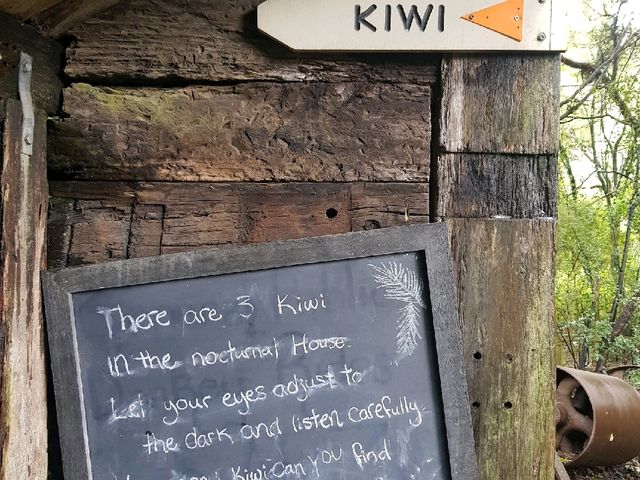 KIWI
There are 3 Kiwi
in the nocturnal House.
Let your eyes adjust to
the dark and listen carefully.
Kiwi can you find